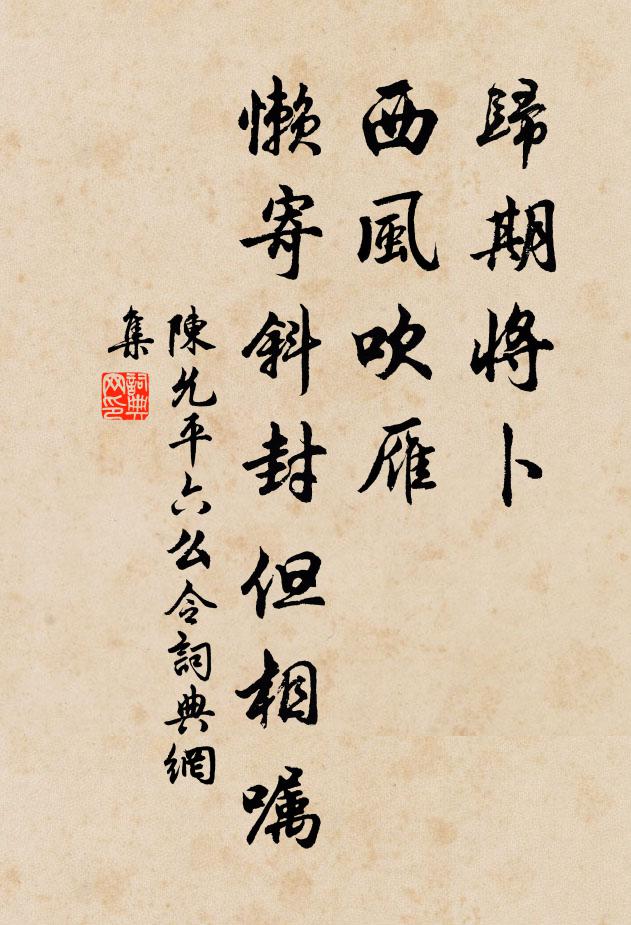 歸期將卜
西風吹雁
懶寄斜封但相嘱
陳允平六么令詞典網
集
詞典
网印